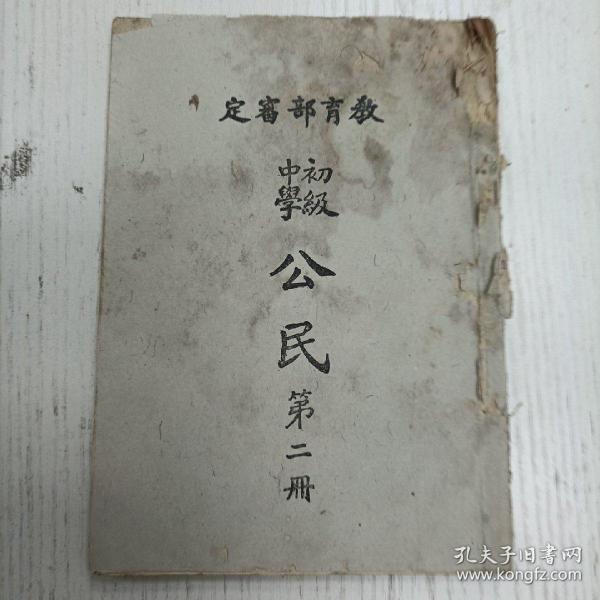 教育部審定
初級
中學
公民
第二冊
孔夫子旧書网
www.kongfz.com